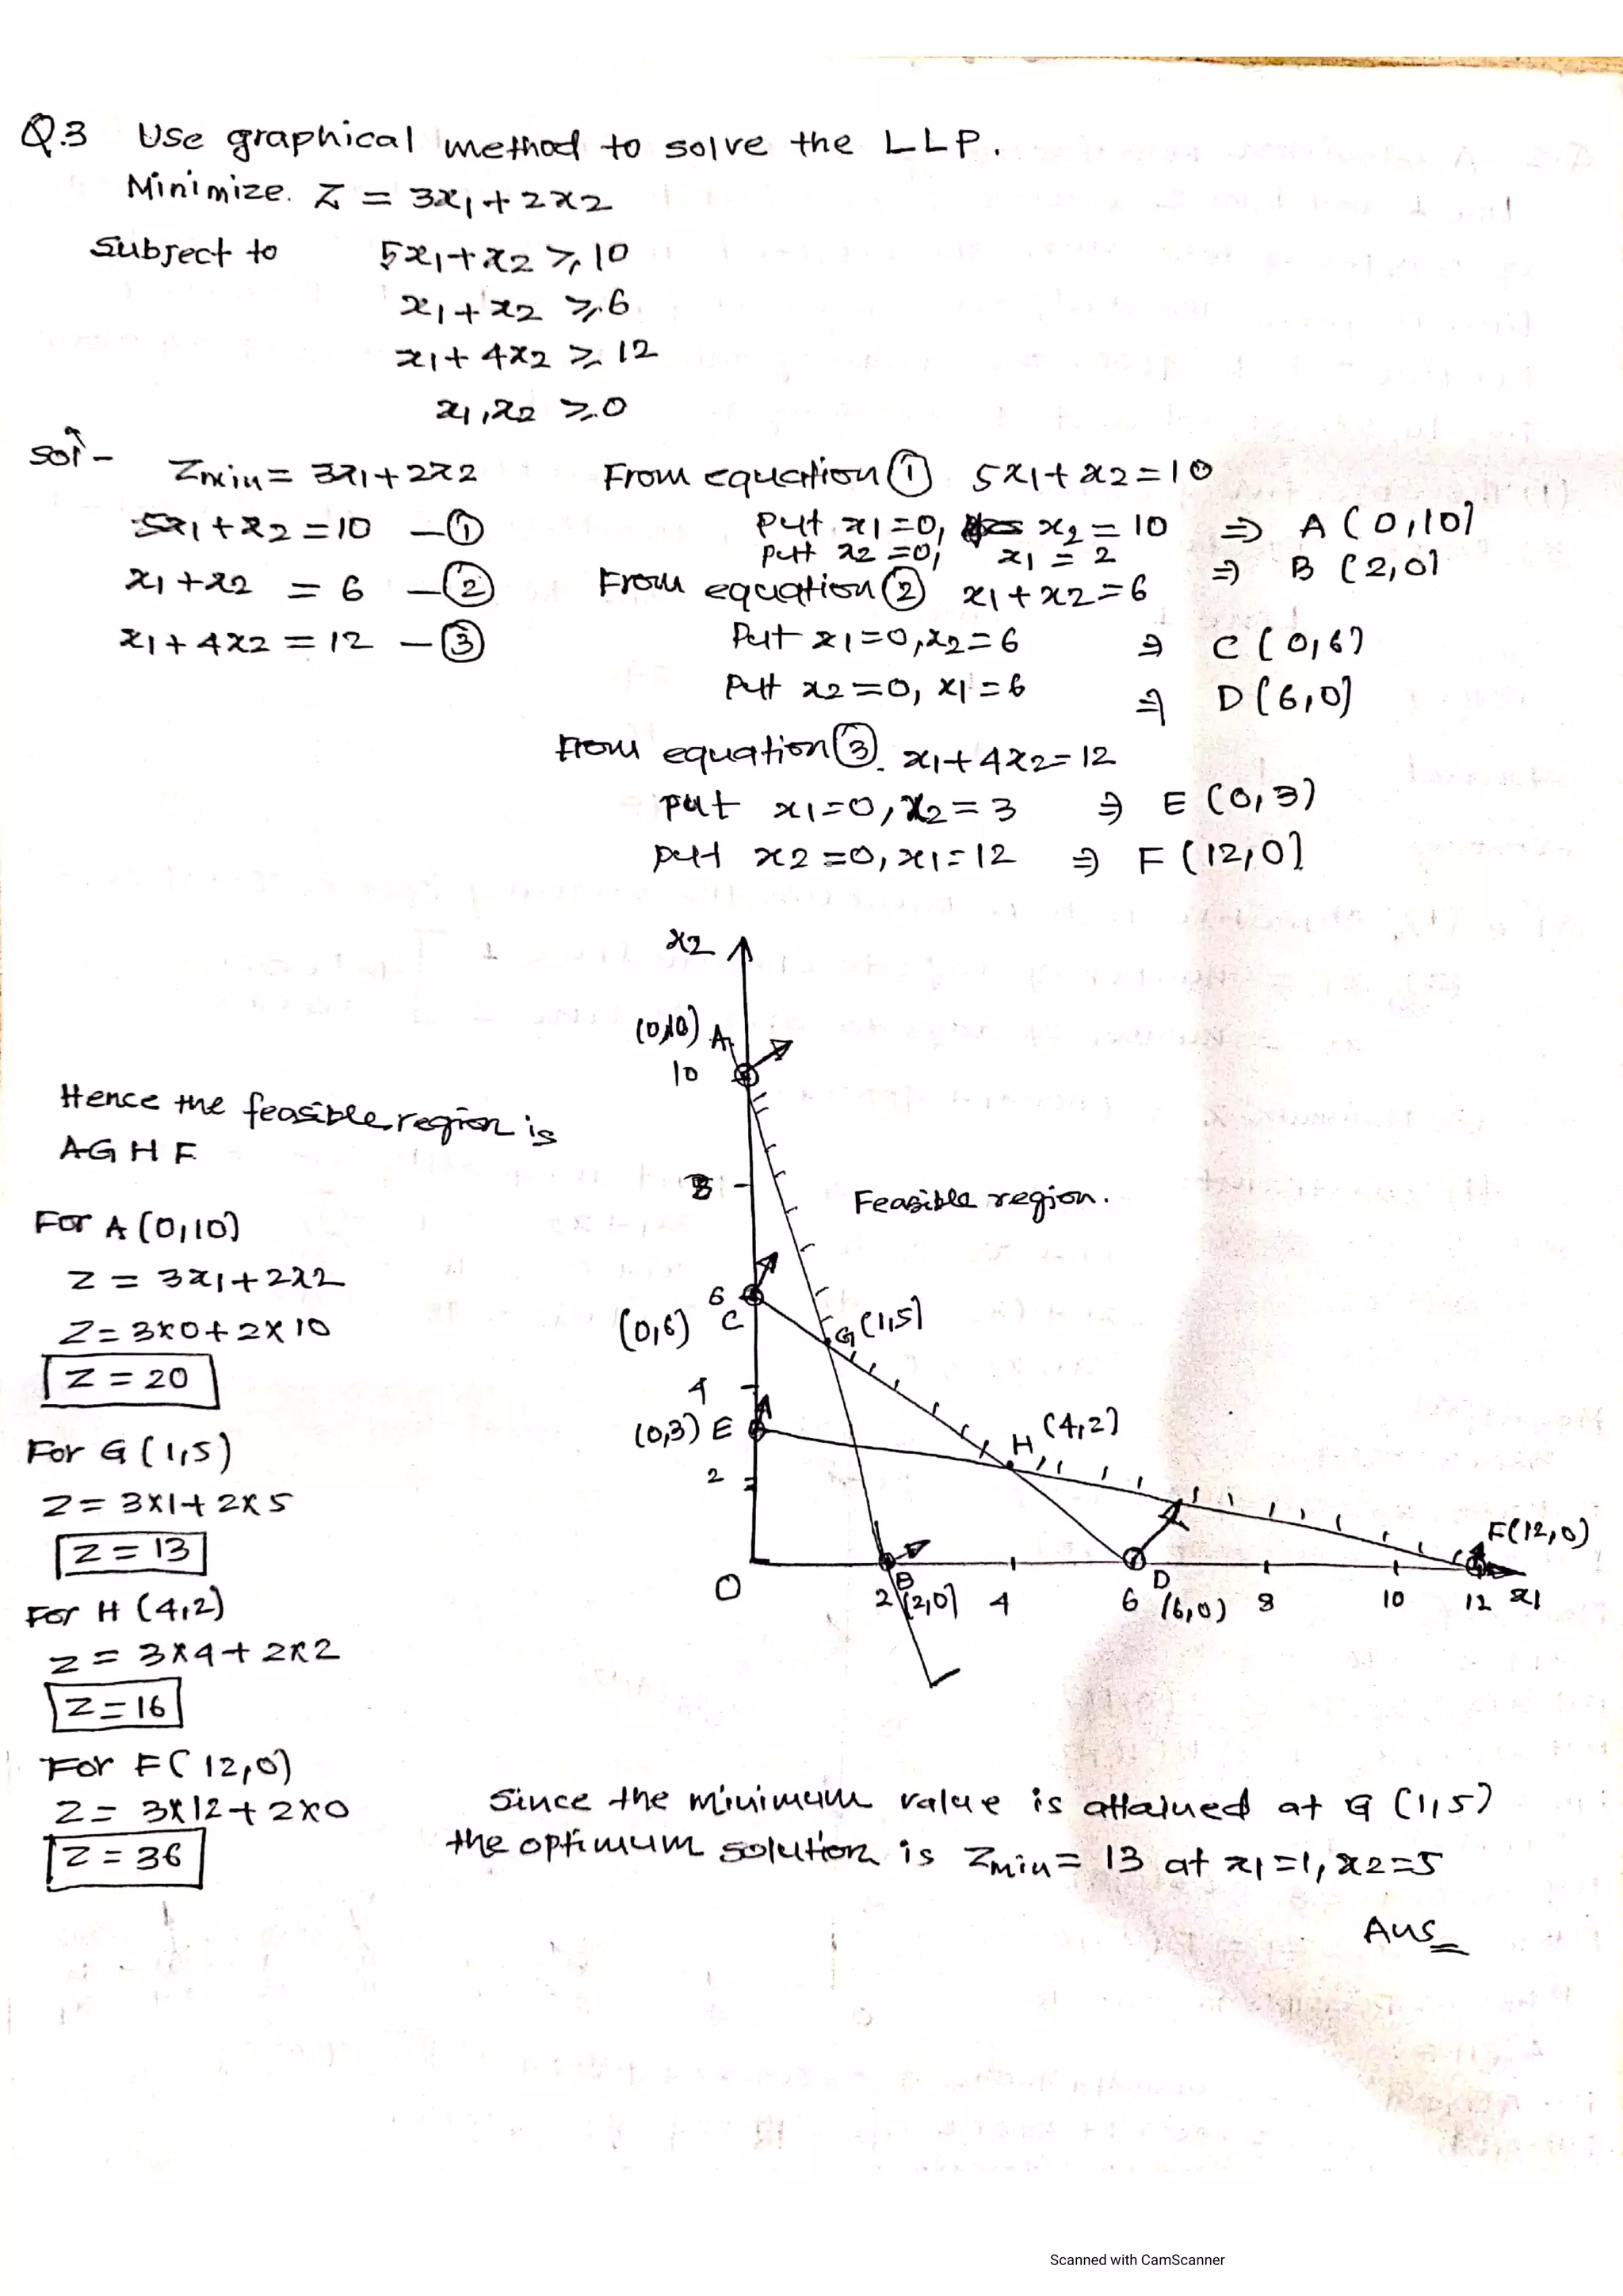 Q.3 Use graphical method to solve the LLP.
Minimize. Z = 3x1 + 2x2
Subject to 5x1 + x2 ≥ 10
x1 + x2 ≥ 6
x1 + 4x2 ≥ 12
x1, x2 ≥ 0
Solⁿ -
Zmin = 3x1 + 2x2
5x1 + x2 = 10 — ①
x1 + x2 = 6 — ②
x1 + 4x2 = 12 — ③
From equation ① 5x1 + x2 = 10
Put x1 = 0, x2 = 10 ⇒ A (0,10)
Put x2 = 0, x1 = 2 ⇒ B (2,0)
From equation ② x1 + x2 = 6
Put x1 = 0, x2 = 6 ⇒ C (0,6)
Put x2 = 0, x1 = 6 ⇒ D (6,0)
From equation ③. x1 + 4x2 = 12
put x1 = 0, x2 = 3 ⇒ E (0,3)
put x2 = 0, x1 = 12 ⇒ F (12,0)
x2
(0,10) A
10
8
Feasible region.
6
(0,6) C
G (1,5)
4
(0,3) E
H (4,2)
2
F(12,0)
O
2 B (2,0) 4 6 D (6,0) 8 10 12 x1
Hence the feasible region is
AGHF
For A (0,10)
Z = 3x1 + 2x2
Z = 3×0 + 2×10
Z = 20
For G (1,5)
Z = 3×1 + 2×5
Z = 13
For H (4,2)
Z = 3×4 + 2×2
Z = 16
For F (12,0)
Z = 3×12 + 2×0
Z = 36
Since the minimum value is attained at G (1,5)
the optimum solution is Zmin = 13 at x1 = 1, x2 = 5
Ans
Scanned with CamScanner